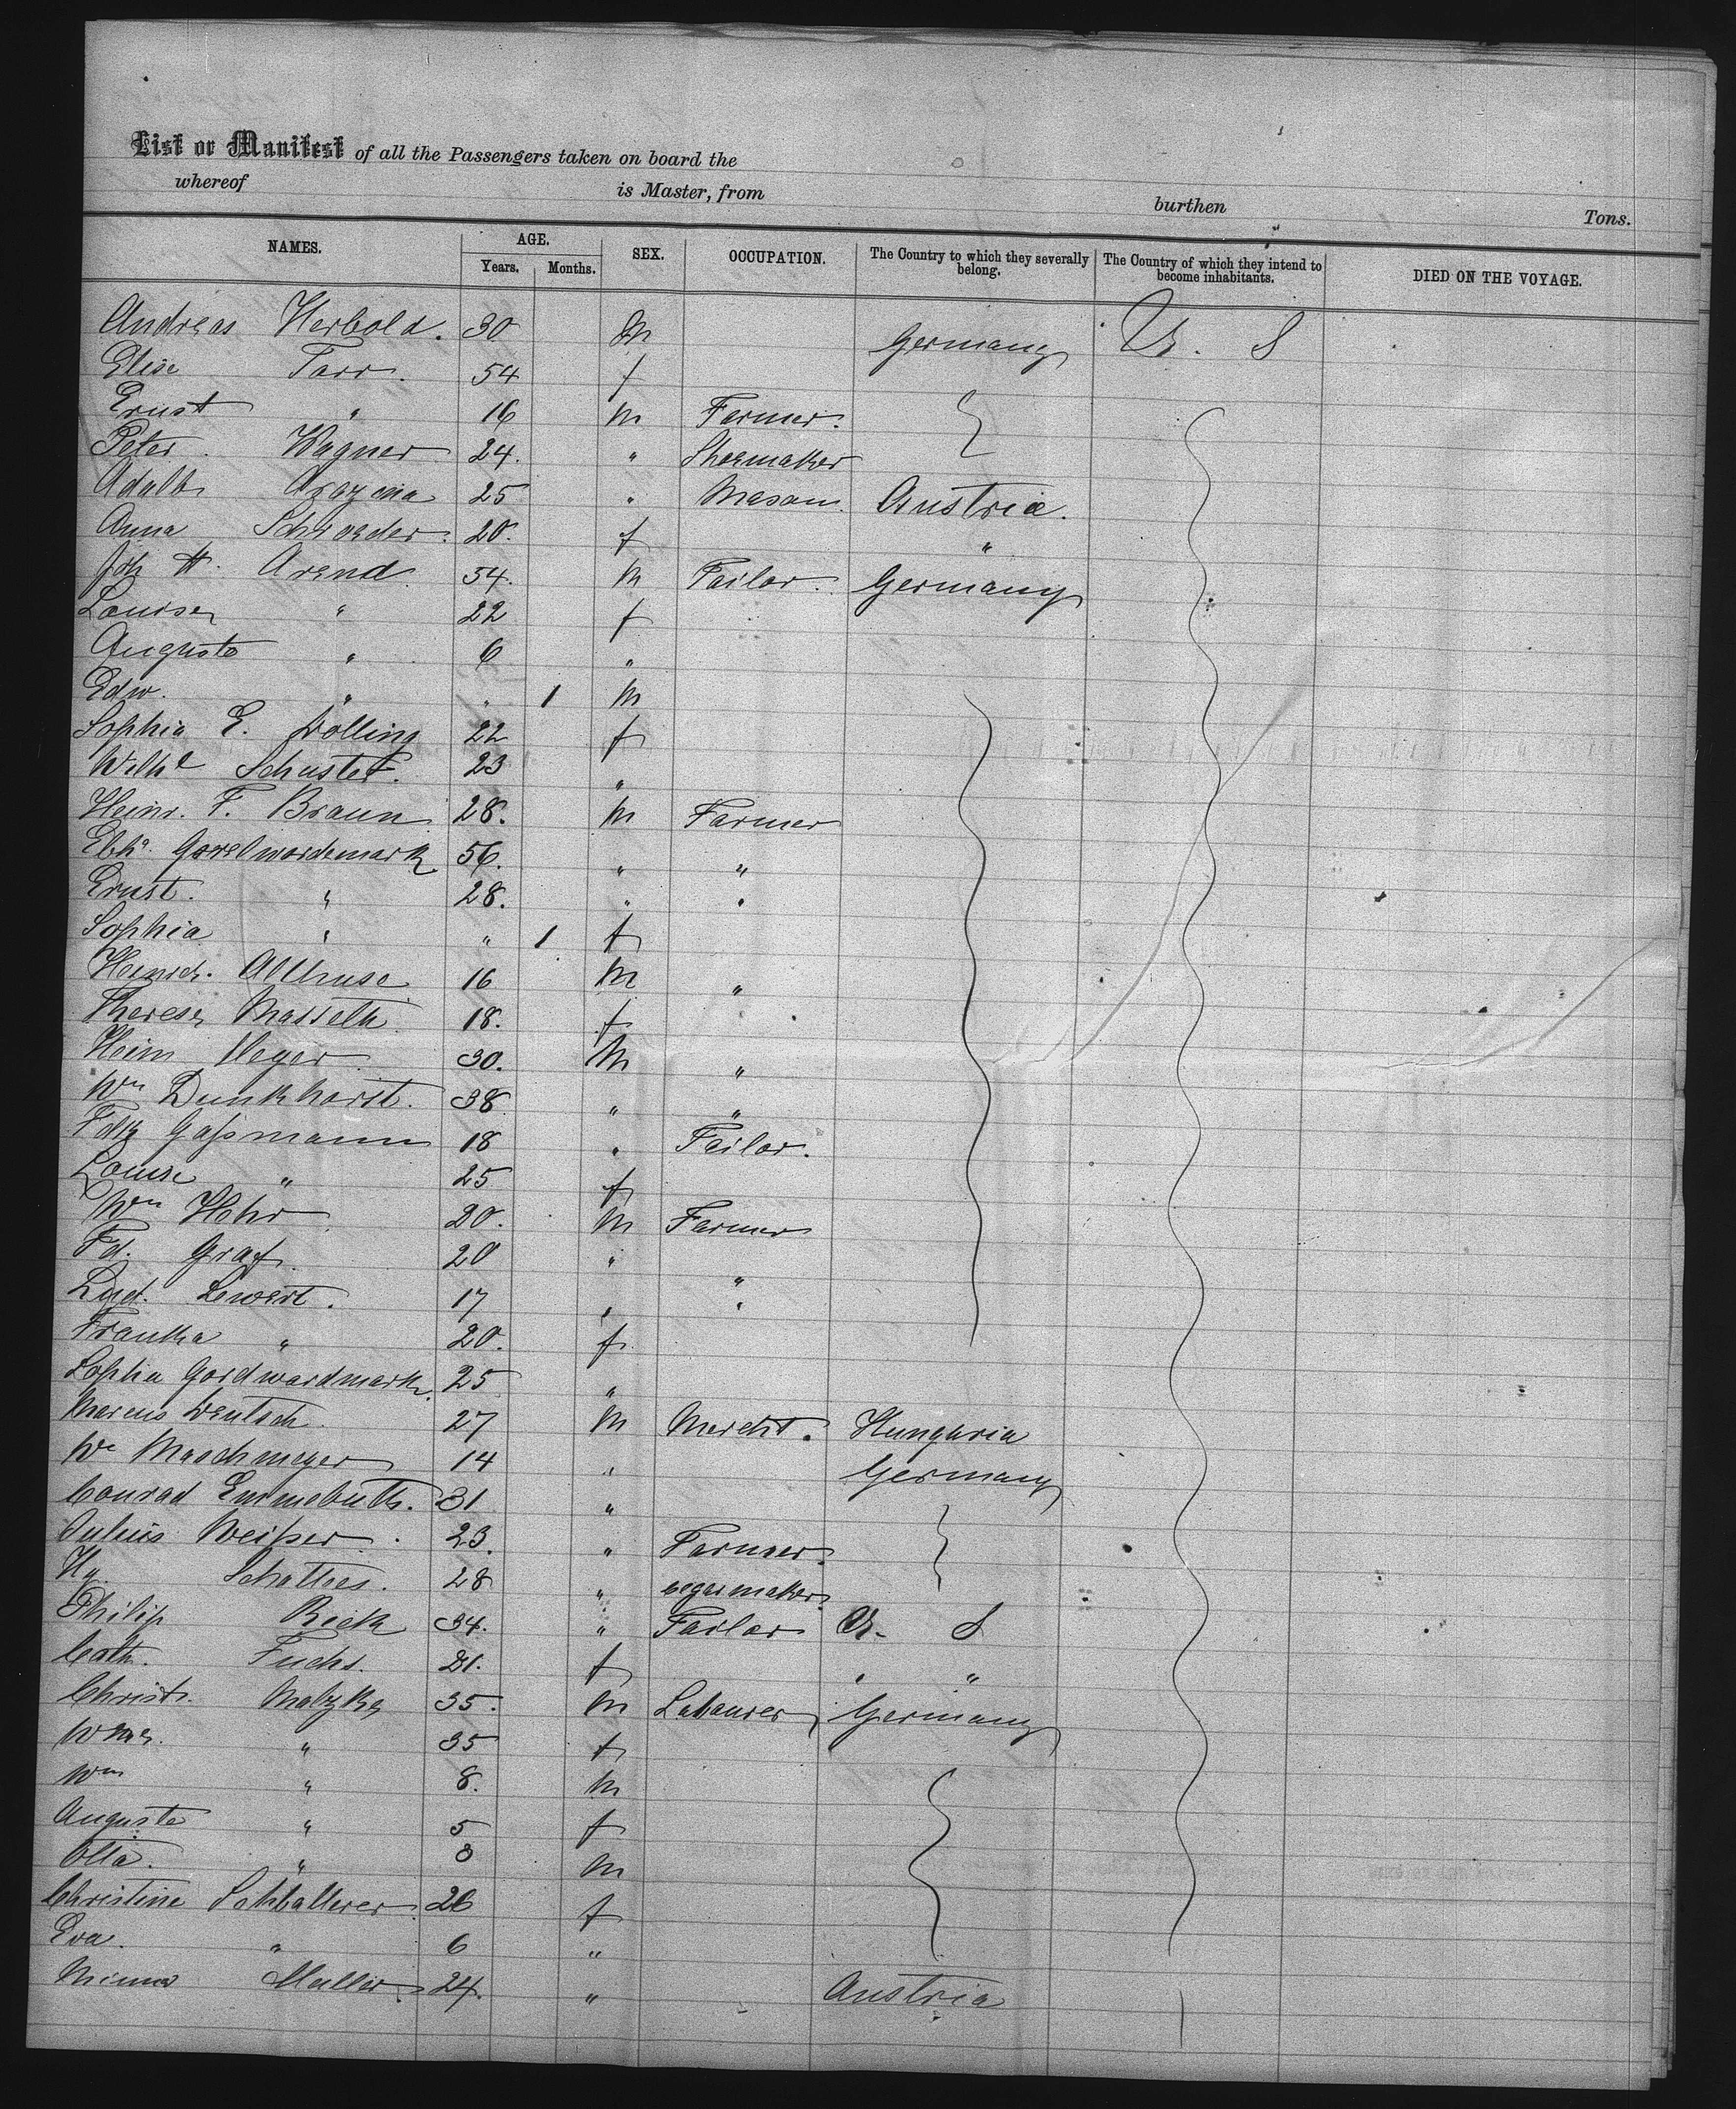 List or Manifest of all the Passengers taken on board the
whereof is Master, from burthen Tons.
NAMES. AGE. SEX. OCCUPATION. The Country to which they severally belong. The Country of which they intend to become inhabitants. DIED ON THE VOYAGE.
Years. Months.
Andreas Herbold. 30 m Germany U. S
Elise Farr. 54 f
Ernst " 16 m Farmer.
Peter Wagner 24. " Shoemaker
Adalb 25 " Mason. Austria.
Anna Schroeder. 20. f "
Joh H. Arend 54. m Tailor. Germany
Louise " 22 f
Auguste " 6 "
Edw. " " 1 m
Sophia E. Dolling 22 f
Wilhe Schuster. 23 "
Heinr. F. Braun 28. m Farmer
56. " "
Ernst. " 28. " "
Sophia " " 1 f
Heinrch. Allhuse 16 m "
Therese 18. f
Heinr 30. m "
Wm Dunkhorst. 38 " "
Fdk Gaßmann 18 " Tailor.
Louise " 25 f
Wm Hehr 20. m Farmer
Fd. Graf. 20 " "
Lud. Lewert. 17 " "
Franka " 20. f
Sophia Gordwardmark. 25 "
Marcus Deutsch 27 m Mercht. Hungaria
Wm Maschmeyer 14 " Germany
Conrad 31 "
Julius Weißer. 23. " Farmer.
Hy. 28 " segarmaker.
Philip Rick 34. " Tailor U. S
Cath. Fuchs. 21. f " "
Christ. Matzke 35. m Labourer Germany
" 35 f
Wm " 8. m
Auguste " 5 f
Otto. " 3 m
Christine 26 f
Eva. " 6 "
Minna Muller. 24. " Austria